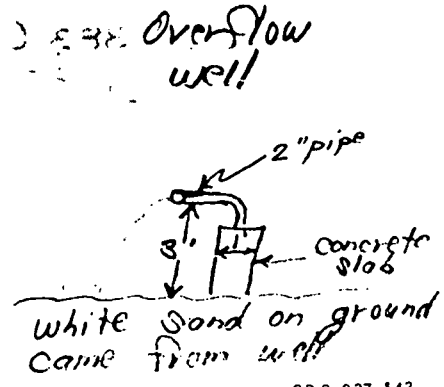 Overflow
well
2" pipe
3'
1'
concrete
slab
white sand on ground
came from well